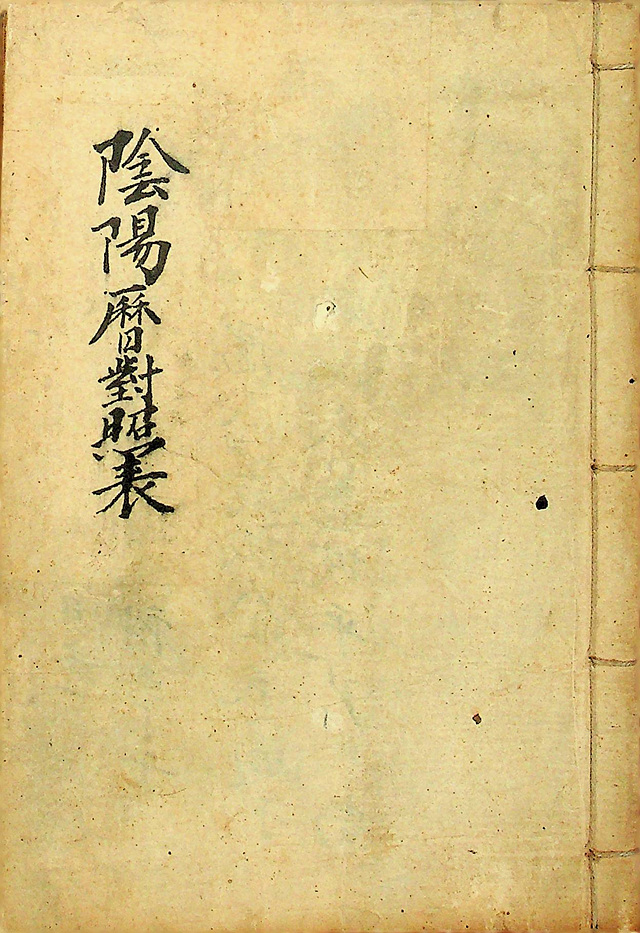 陰陽曆對照表